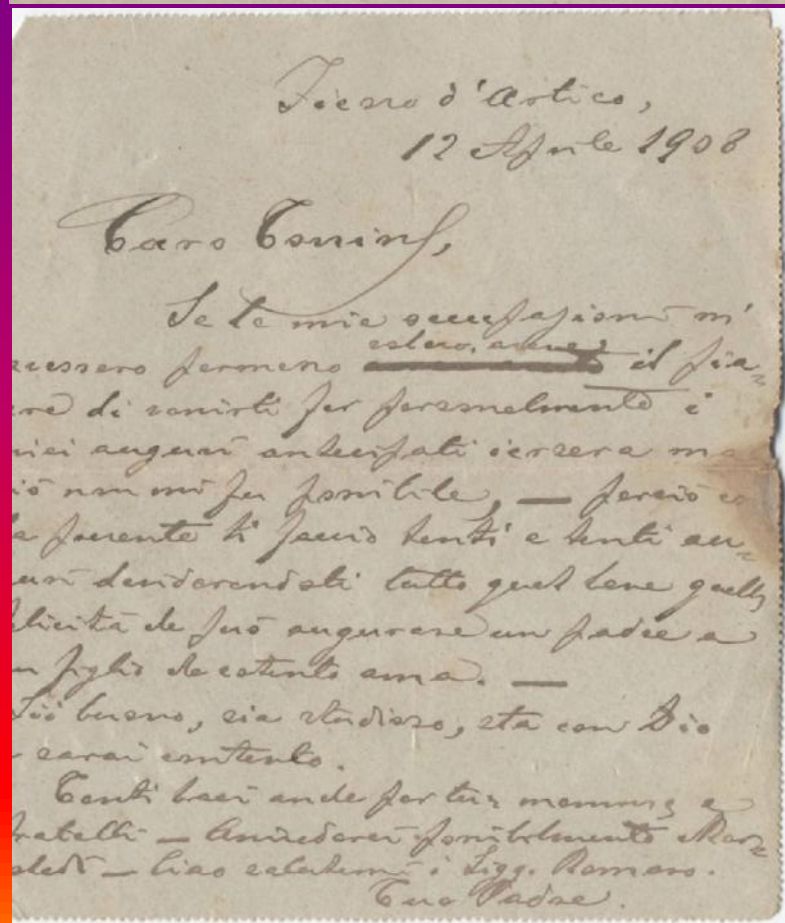 Fiesso d'Artico,
12 Aprile 1908
Caro Tonin,
Se le mie occupazioni m'
cessero permeno il pia=
ere di venirti per personalmente i
miei auguri antecipati iersera ma
iò non mi fu possibile, — perciò co
la presente ti faccio tanti e tanti au=
uri desiderandoti tutto quel bene quella
elicità che può augurare un padre a
n figlio che cotanto ama. —
Sii buono, sia studioso, sta con Dio
e sarai contento.
Tanti baci anche per tua mamma e
fratelli — Arrivederci possibilmente Mar=
tedì — Ciao salutemi i Sigg. Romaro.
Tuo Padre.